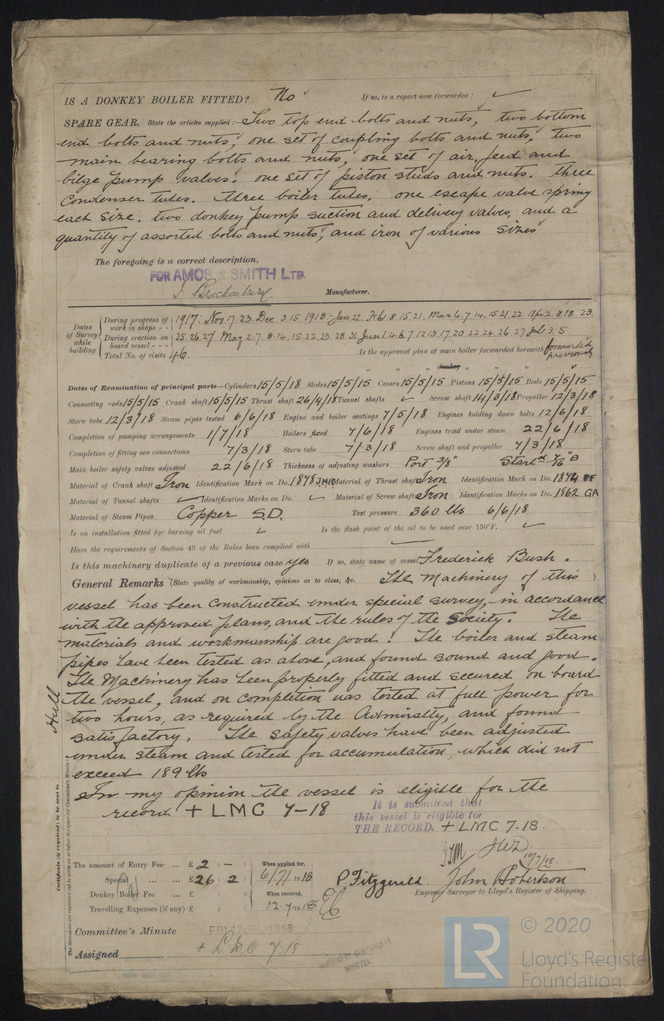 IS A DONKEY BOILER FITTED? No If so, is a report now forwarded? ✓
SPARE GEAR. State the articles supplied:— Two top end bolts and nuts, two bottom
end bolts and nuts, one set of coupling bolts and nuts, two
main bearing bolts and nuts, one set of air, feed and
bilge pump valves. one set of piston studs and nuts. three
Condenser tubes. three boiler tubes. one escape valve spring
each size. two donkey pump suction and delivery valves, and a
quantity of assorted bolts and nuts, and iron of various sizes
The foregoing is a correct description,
FOR AMOS & SMITH LTD.
Manufacturer.
Dates of Survey while building
During progress of work in shops - - 1917. Nov. 17. 23. Dec. 3. 15. 1918 - Jan 22. Feb 1. 8. 15. 21. Mar 6. 7. 14. 15. 21. 22 Apr 2. 23
During erection on board vessel - - - 25. 26. 27 May 2. 7. 14. 15. 22. 23. 28. 31 June 1. 4. 6. 7. 12. 13. 17. 20. 22. 24. 26. 27 July 3. 5
Total No. of visits 46 Is the approved plan of main boiler forwarded herewith forwarded previously
" " " donkey " " "
Dates of Examination of principal parts—Cylinders 15/5/18 Slides 15/5/15 Covers 15/5/15 Pistons 15/5/15 Rods 15/5/15
Connecting rods 15/5/15 Crank shaft 15/5/15 Thrust shaft 26/4/18 Tunnel shafts ✓ Screw shaft 14/3/18 Propeller 12/3/18
Stern tube 12/3/18 Steam pipes tested 6/6/18 Engine and boiler seatings 7/5/18 Engines holding down bolts 12/6/18
Completion of pumping arrangements 1/7/18 Boilers fixed 7/6/18 Engines tried under steam 22/6/18
Completion of fitting sea connections 7/3/18 Stern tube 7/3/18 Screw shaft and propeller 7/3/18
Main boiler safety valves adjusted 22/6/18 Thickness of adjusting washers Port 3/8" Starbd 7/16" B
Material of Crank shaft Iron Identification Mark on Do. 1878 JHR Material of Thrust shaft Iron Identification Mark on Do. 1874
Material of Tunnel shafts ✓ Identification Marks on Do. ✓ Material of Screw shafts Iron Identification Marks on Do. 1862 GA
Material of Steam Pipes Copper S.D. Test pressure 360 lbs 6/6/18
Is an installation fitted for burning oil fuel ✓ Is the flash point of the oil to be used over 150°F. ✓
Have the requirements of Section 49 of the Rules been complied with ✓
Is this machinery duplicate of a previous case yes If so, state name of vessel Frederick Bush.
General Remarks (State quality of workmanship, opinions as to class, &c. The Machinery of this
vessel has been constructed under special survey, in accordance
with the approved plans, and the rules of the Society. The
materials and workmanship are good! The boiler and steam
pipes have been tested as above, and found sound and good.
The Machinery has been properly fitted and secured on board
the vessel, and on completion was tested at full power for
two hours, as required by the Admiralty, and found
satisfactory. The safety valves have been adjusted
under steam and tested for accumulation, which did not
exceed 189 lbs
In my opinion the vessel is eligible for the
record + LMC 7-18
It is submitted that
this vessel is eligible for
THE RECORD. + LMC 7.18.
Hull
Certificate (if required) to be sent to
The amount of Entry Fee ... £ 2 : - When applied for,
Special ... £ 26 : 2 6/7/1918
Donkey Boiler Fee ... £ When received,
Travelling Expenses (if any) £ 12.7.1918
P Fitzgerald. John Robertson
Engineer Surveyor to Lloyd's Register of Shipping.
Committee's Minute FRI 12 JUL 1918
Assigned + L.M.C 7.18
© 2020
LR
Lloyd's Register
Foundation